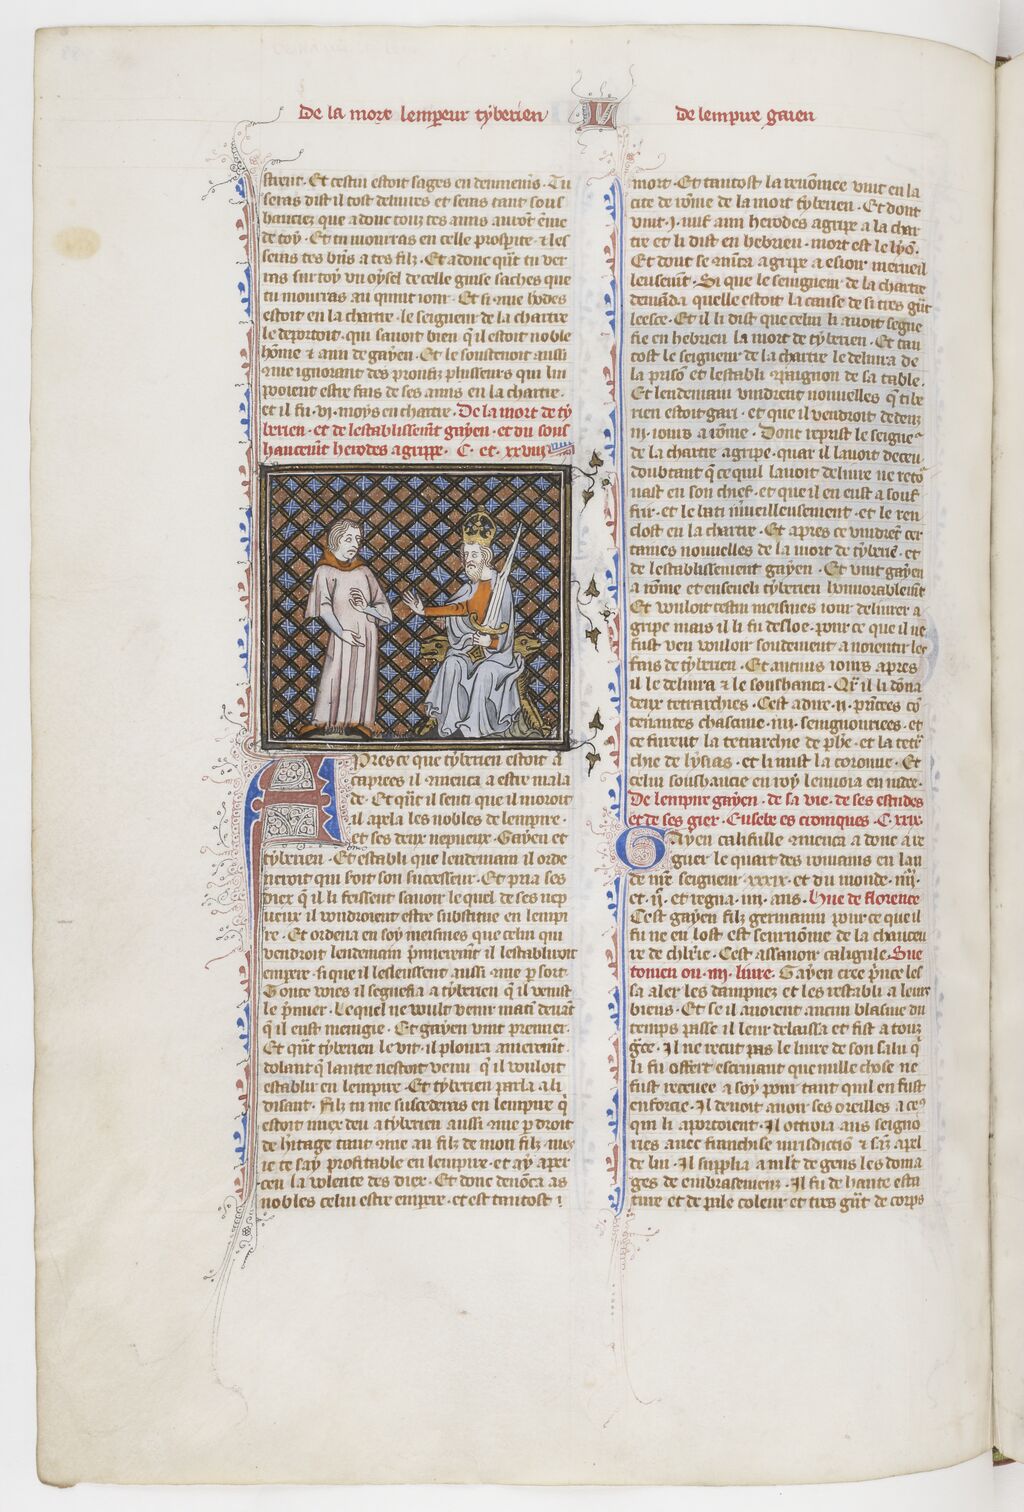 De la mort lempereur tyberien
de lempire gaien
streut. Et cestui estoit sages en deuineurs. Tu
seras dist il tost deliures et seras tant sous
hauciez que adonc touz tes amis auront enuie
de toy. Et tu mourras en celle prosperite et les
seras tes biens a tes filz. Et adonc quant tu ver
ras sur toy vn oysel de celle guise saches que
tu mourras au quint iour. Et si que hodes
estoit en la chartre. le seigneur de la chartre
le deportoit. qui sauoit bien qil estoit noble
homme et ami de gayen. Et le soustenoit aussi
que ignorant des prouffiz pluseurs qui lui
estre fais de ses amis en la chartre.
et il fu .vi. moys en chartre. De la mort de ty
berien. et de lestablissement gayen. et du sous
haucemt herodes agrippe. C. et. xxviii
Apres ce que tyberien estoit a
caprees il commenca a estre mala
de. Et quant il senti que il moroit
il apela les nobles de lempire.
et ses deux nepueux. Gayen et
tyberien. Et establi que lendemain il orde
neroit qui soit son successeur. Et pria ses
diex que il li feissent sauoir le quel de ses nep
ueux il voudroient estre substitue en lempi
re. Et ordena en soy meismes que celui qui
vendroit lendemain premierement il lestabliroit
empere. si que il lesleussent aussi que par sort.
Toute voies il segnefia a tyberien que il venist
le premier. Lequel ne voult venir matin deuant
que il eust mengie. Et gayen vint premier.
Et quant tyberien le vit. il ploura amerement.
dolant que lautre nestoit venu que il vouloit
establir en lempire. Et tyberien parla a li
disant. Filz tu me succederas en lempire que
estoit mieux deu a tyberien aussi que par droit
de heritage tant que au filz de mon filz. mes
ie te say profitable en lempire. et ay aper
ceu la volente des diex. Et donc denonca as
nobles celui estre empere. et est tantost
mort. Et tantost la renommee vint en la
cite de romme de la mort tyberien. Et dont
vint .i. iuif ami herodes agrippe a la char
tre et li dist en hebrieu. mort est le lyon.
Et dont se commenca agrippe a esioir merueil
leusement. Si que le seigneur de la chartre
demanda quelle estoit la cause de si tres grant
leesce. Et il li dist que celui li auoit segne
fie en hebrieu la mort de tyberien. Et tan
tost le seigneur de la chartre le deliura de
la prison et lestabli compaignon de sa table.
Et lendemain vindrent nouuelles que tibe
rien estoit gari. et que il vendroit dedenz
iii. iours a romme. Dont reprist le seigneur
de la chartre agrippe. quar il lauoit deceu
doubtant que ce quil lauoit deliure ne reto
nast en son chief. et que il en eust a souf
frir. et le bati merueilleusement. et le ren
clost en la chartre. Et apres ce vindrent cer
taines nouuelles de la mort de tyberien. et
de lestablissement gayen. Et vint gayen
a romme et enseueli tyberien honnorablement
Et vouloit cestui meismes iour deliurer a
gripe mais il li fu desloe. pour ce que il ne
fust veu vouloir soudement anoientir les
fais de tyberien. Et aucuns iours apres
il le deliura et le soushauca. Quar il li donna
deux tetrarchies. Cest a dire .ii. princees con
tenantes chascune .iiii. seignouriees. et
ce furent la tetrarchie de phelippe. et la tetrar
chie de lysias. et li mist la couronne. Et
celui soushaucie en roy lenuoia en iudee.
De lempire gayen. de sa vie. de ses estudes
et de ses gieux. Eusebe es croniques. C. xxix.
Gayen califulle commenca adonc a re
gner le quart des roumains en lan
de nostre seigneur .xxxix. et du monde. iiii.
et. ii. et regna. iiii. ans. Hue de florence
Cest gayen filz germanin pour ce que il
fu ne en lost est seurnomme de la chauceu
re de cheualerie. Cest assauoir caligule. Sue
tonien ou .iiii. liure. Gayen cree prince les
sa aler les dampnez et les restabli a leurs
biens. Et se il auoient aucun blasme du
temps passe il leur delaissa et fist a touz
grace. Il ne recut pas le liure de son salu que
li fu offert escriuant que nulle chose ne
fust receuee a soy pour tant quil en fust
enforcie. Il denoit auoir ses oreilles a ceus
qui li aportoient. Il ottroia aus seigno
ries auec franchise iurisdiction et sanz apel
de lui. Il supplia a mult de gens les doma
ges de embrasemens. Il fu de haute esta
ture et de pale couleur et tres grant de corps